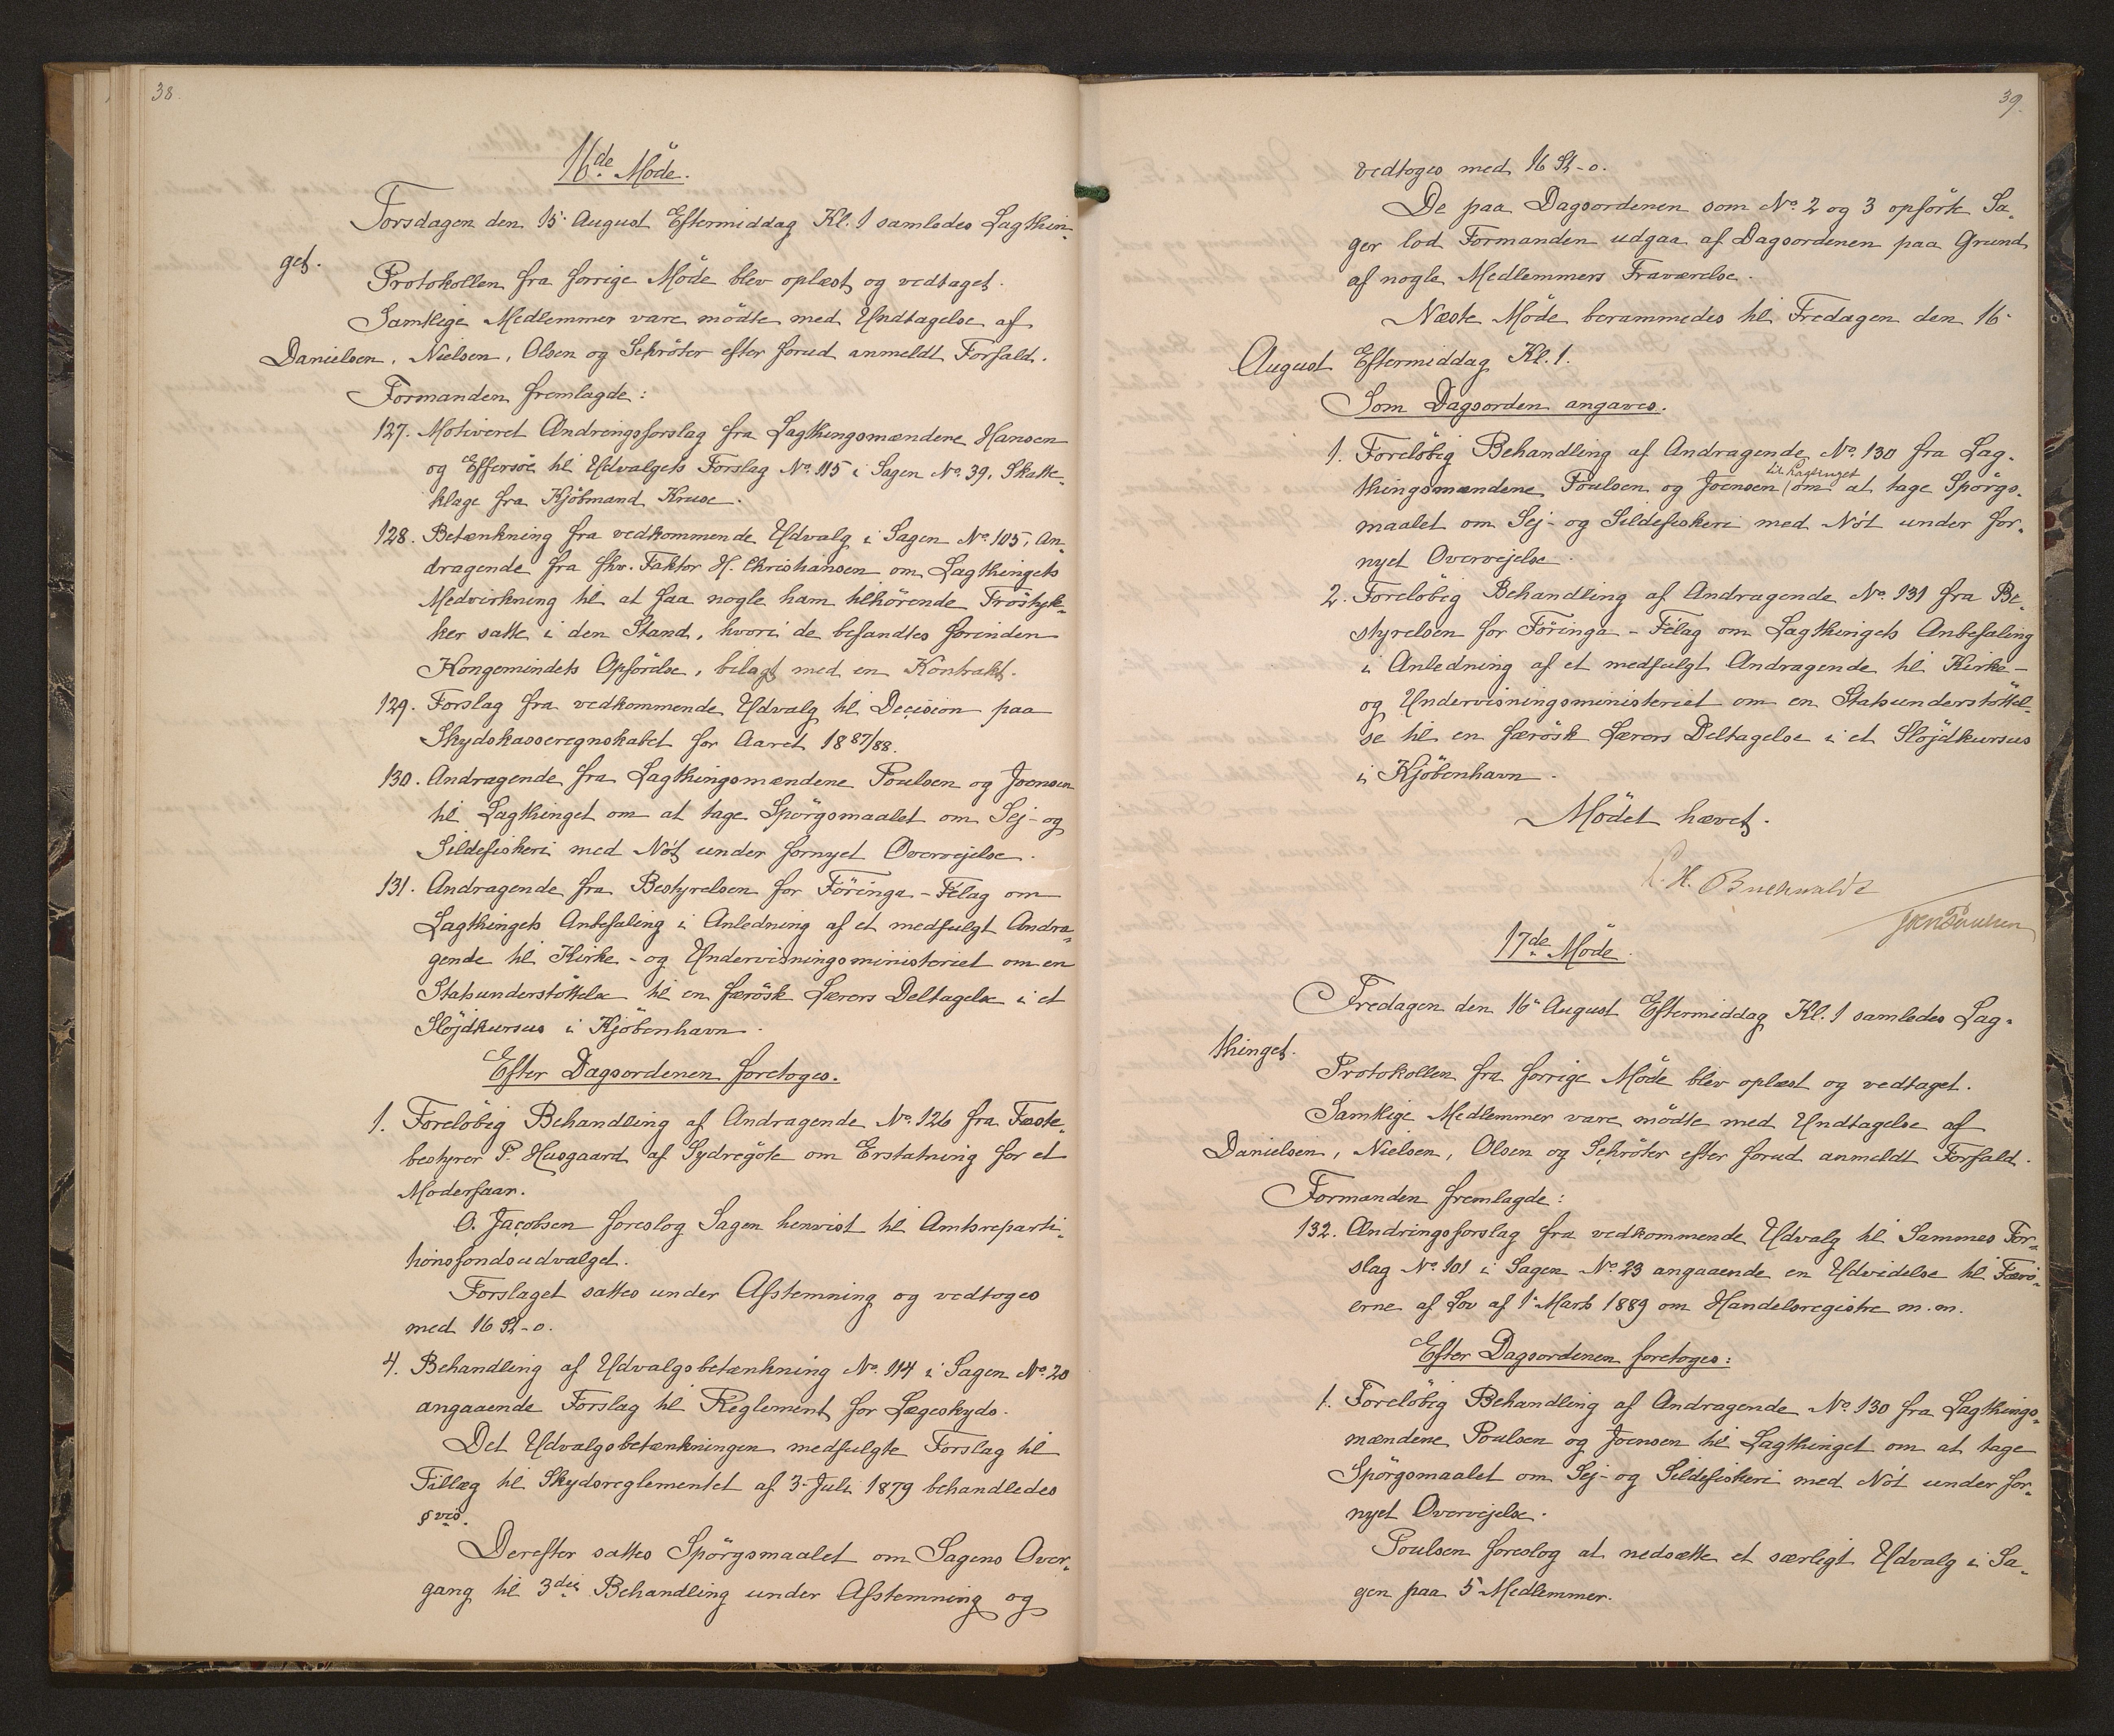 38.
16de Möde.
Torsdagen den 15. August Eftermiddag Kl. 1 samledes Lagthin-
get.
Protokollen fra forrige Möde blev oplæst og vedtaget.
Samtlige Medlemmer vare mödte med Undtagelse af
Danielsen, Nielsen, Olsen og Schröter efter forud anmeldt Forfald.
Formanden fremlagde:
127. Motiveret Ændringsforslag fra Lagthingsmændene Hansen
og Effersöe til Udvalgets Forslag No. 115 i Sagen No. 39, Skatte-
klage fra Kjöbmand Kruse.
128. Betænkning fra vedkommende Udvalg i Sagen No. 105, An-
dragende fra fhv. Faktor H. Christiansen om Lagthingets
Medvirkning til at faa nogle ham tilhörende Tröstyk-
ker satte i den Stand, hvori de befandtes forinden
Kongemindets Opförelse, bilagt med en Kontrakt.
129. Forslag fra vedkommende Udvalg til Decision paa
Skydskasseregnskabet for Aaret 1887/88.
130. Andragende fra Lagthingsmændene Poulsen og Joensen
til Lagthinget om at tage Spörgsmaalet om Sej- og
Sildefiskeri med Nót under fornyet Overvejelse.
131. Andragende fra Bestyrelsen for Föringa-Félag om
Lagthingets Anbefaling i Anledning af et medfulgt Andra-
gende til Kirke- og Undervisningsministeriet om en
Statsunderstöttelse til en færösk Lærers Deltagelse i et
Slöjdkursus i Kjöbenhavn.
Efter Dagsordenen foretoges.
1. Forelöbig Behandling af Andragende No. 126 fra Fæste-
bestyrer P. Husgaard af Sydregöte om Erstatning for et
Moderfaar.
O. Jacobsen foreslog Sagen henvist til Amtsreparti-
tionsfondsudvalget.
Forslaget sattes under Afstemning og vedtoges
med 16 St-0.
4. Behandling af Udvalgsbetænkning No. 114 i Sagen No. 20
angaaende Forslag til Reglement for Lægeskyds.
Det Udvalgsbetænkningen medfulgte Forslag til
Tillæg til Skydsreglementet af 3. Juli 1879 behandledes
§vis.
Derefter sattes Spörgsmaalet om Sagens Over-
gang til 3die Behandling under Afstemning og
39.
vedtoges med 16 St-0.
De paa Dagsordenen som No. 2 og 3 opförte Sa-
ger lod Formanden udgaa af Dagsordenen paa Grund
af nogle Medlemmers Fraværelse.
Næste Möde berammedes til Fredagen den 16.
August Eftermiddag Kl. 1.
Som Dagsorden angaves.
1. Forelöbig Behandling af Andragende No. 130 fra Lag-
til Lagtinget
thingsmændene Poulsen og Joensen / om at tage Spörgs-
maalet om Sej- og Sildefiskeri med Nót under for-
nyet Overvejelse.
2. Forelöbig Behandling af Andragende No. 131 fra Be-
styrelsen for Föringa-Félag om Lagthingets Anbefaling
i Anledning af et medfulgt Andragende til Kirke-
og Undervisningsministeriet om en Statsunderstöttel-
se til en færösk Lærers Deltagelse i et Slöjdkursus
i Kjöbenhavn.
Mödet hævet.
C. H. Buchwaldt
Joen Poulsen
17de Möde.
Fredagen den 16. August Eftermiddag Kl. 1 samledes Lag-
thinget.
Protokollen fra forrige Möde blev oplæst og vedtaget.
Samtlige Medlemmer vare mödte med Undtagelse af
Danielsen, Nielsen, Olsen og Schröter efter forud anmeldt Forfald.
Formanden fremlagde:
132. Ændringsforslag fra vedkommende Udvalg til Sammes For-
slag No. 101 i Sagen No. 23 angaaende en Udvidelse til Færö-
erne af Lov af 1. Marts 1889 om Handelsregistre m.m.
Efter Dagsordenen foretoges:
1. Forelöbig Behandling af Andragende No. 130 fra Lagthings-
mændene Poulsen og Joensen til Lagthinget om at tage
Spörgsmaalet om Sej- og Sildefiskeri med Nót under for-
nyet Overvejelse.
Poulsen foreslog at nedsætte et særligt Udvalg i Sa-
gen paa 5 Medlemmer.